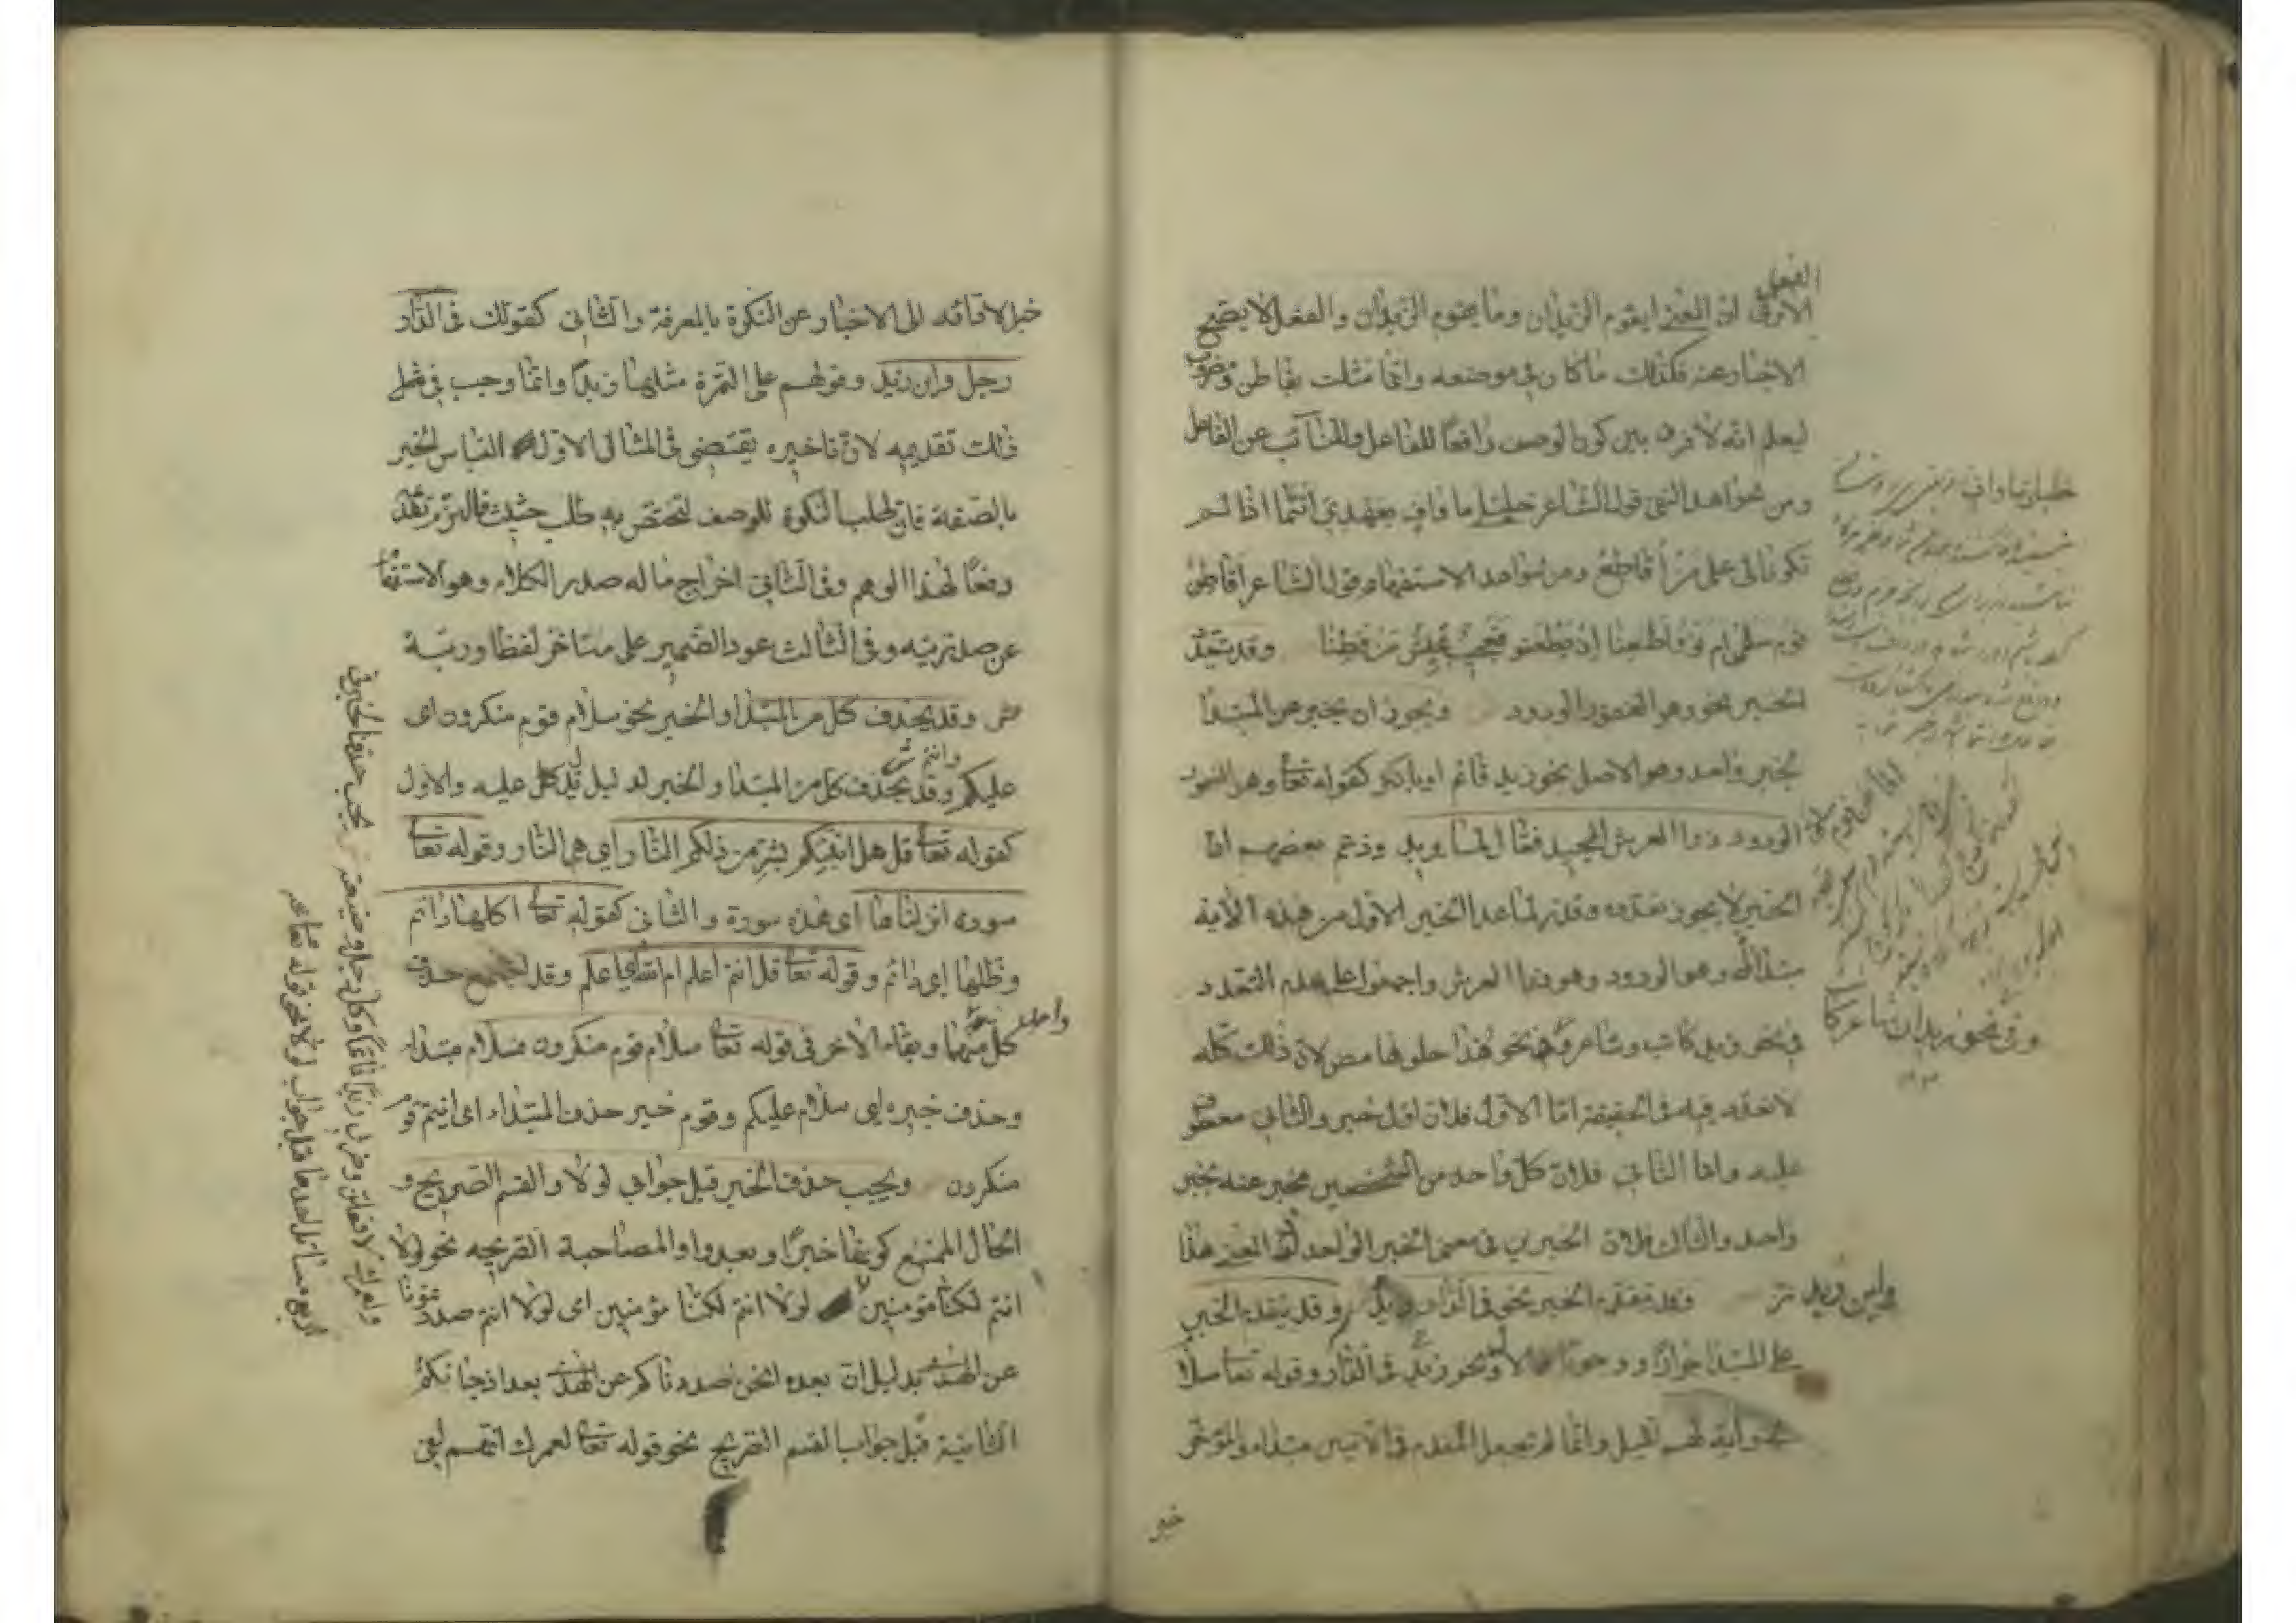 الفعل
الا ترى ان المعنى ايقوم الزيدان وما يقوم الزيدان والفعل لا يصح
الاخبار عنه فكذلك ما كان في موضعه وانما مثلت بقاطن ومضروب
ليعلم انه لا فرق بين كون الوصف رافعا للفاعل والنائب عن الفاعل
ومن شواهد النفي قول الشاعر خليلي ما واف بعهدي انتما اذا لم
تكونا لي على من اقاطع ومن شواهد الاستفهام قول الشاعر اقاطن
قوم سلمى ام نووا ظعنا ان يظعنوا فعجيب عيش من قطنا وقد يتعدد
الخبر نحو وهو الغفور الودود ويجوز ان يخبر عن المبتدا
بخبر واحد وهو الاصل نحو زيد قائم او باكثر كقوله تعا وهو الغفور
الودود ذو العرش المجيد فعال لما يريد وزعم بعضهم ان
الخبر لا يجوز تعدده وقدر لما عدا الخبر الاول من هذه الاية
مبتدا اى وهو الودود وهو ذو العرش واجمعوا على عدم التعدد
في نحو زيد كاتب وشاعر وفي نحو هذا حلو حامض لان ذلك كله
لا تعدد فيه في الحقيقة اما الاول فلان اول خبر والثاني معطوف
عليه واما الثاني فلان كل واحد من الشخصين مخبر عنه بخبر
واحد والثالث فلان الخبرين في معنى الخبر الواحد اذ المعنى هذا
مز وقد يتقدم الخبر نحو في الدار زيد وقد يتقدم الخبر
واين زيد
على المبتدا جوازا ووجوبا فالاول نحو زيد في الدار وقوله تعا سلام
هى وآية لهم الليل وانما لم تجعل المقدم في الآيتين مبتداء والمؤخر
وفي نحو زيدان شاعر كا
خبر
خبرا لادائه الى الاخبار عن النكرة بالمعرفة والثاني كقولك في الدار
رجل واين زيد وقولهم على التمرة مثلها زبدا وانما وجب في مثل
ذلك تقديمه لان تاخيره يقتضي في المثال الاول التباس الخبر
بالصفة فان طلب النكرة للوصف لتختص به طلب حثيث فالتزم تقد
دفعا لهذا الوهم وفي الثاني اخراج ما له صدر الكلام وهو الاستفها
عن صدريته وفي الثالث عود الضمير على متاخر لفظا ورتبة
ص وقد يحذف كل من المبتدا والخبر نحو سلام قوم منكرون اى
وانتم ش
عليكم وقد يحذف كل من المبتدا والخبر لدليل يدل عليه والاول
كقوله تعا قل هل انبئكم بشر من ذلكم النار اى هى النار وقوله تعا
سورة انزلناها اى هذه سورة والثاني كقوله تعا اكلها دائم
وظلها اى دائم وقوله تعا قل انتم اعلم ام الله اى اعلم وقد اجتمع حذف
واحد
كل منهما وبقاء الاخر في قوله تعا سلام قوم منكرون فسلام مبتداء
وحذف خبره اى سلام عليكم وقوم خبر حذف المبتداء اى انتم قوم
منكرون ويجب حذف الخبر قبل جوابي لولا والقسم الصريح و
الحال الممتنع كونها خبرا وبعد واو المصاحبة الصريحة نحو لولا
انتم لكنا مؤمنين لولا انتم لكنا مؤمنين اى لولا انتم صددتمونا
عن الهدى بدليل ان بعده انحن صددناكم عن الهدى بعد اذ جائكم
الثانية قبل جواب القسم الصريح نحو قوله تعا لعمرك انهم لفي
ولعمرك لافعلن وضربي زيدا قائما وكل رجل وضيعته يجب حذف الخبر في
اربع مسائل احدها قبل جواب لولا نحو قوله تعا